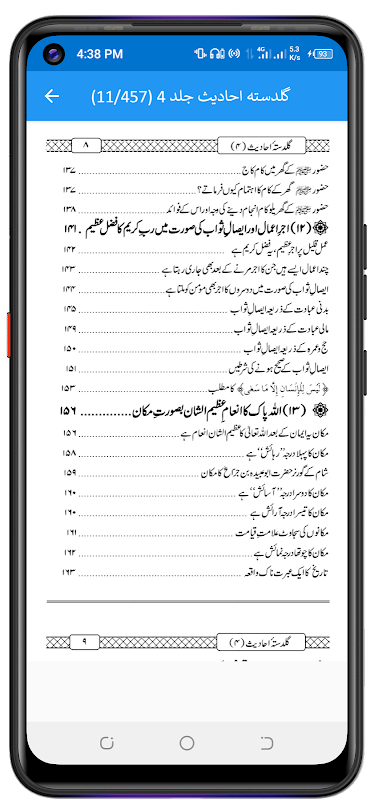 4:38 PM 4G 5.3 K/s 93
گلدستہ احادیث جلد 4 (11/457)
گلدستۂ احادیث (۴) ۸
حضور ﷺ کے گھر میں کام کاج ۱۳۷
حضور ﷺ گھر کے کام کا اہتمام کیوں فرماتے؟ ۱۳۷
حضور ﷺ کے گھریلو کام انجام دینے کی وجہ اور اس کے فوائد ۱۳۸
(۱۲) اجرِ اعمال اور ایصالِ ثواب کی صورت میں ربِ کریم کا فضلِ عظیم ۱۴۱
عملِ قلیل پر اجرِ عظیم، یہ فضلِ کریم ہے ۱۴۲
چند اعمال ایسے ہیں جن کا اجر مرنے کے بعد بھی جاری رہتا ہے ۱۴۳
ایصالِ ثواب کی صورت میں دوسروں کا اجر بھی مؤمن کو ملتا ہے ۱۴۴
بدنی عبادت کے ذریعہ ایصالِ ثواب ۱۴۵
مالی عبادت کے ذریعہ ایصالِ ثواب ۱۴۹
حج وعمرہ کے ذریعہ ایصالِ ثواب ۱۵۰
ایصالِ ثواب کے صحیح ہونے کی شرطیں ۱۵۱
﴿لَيْسَ لِلْإِنْسَانِ إِلَّا مَا سَعٰى﴾ کا مطلب ۱۵۳
(۱۳) اللہ پاک کا انعامِ عظیم الشان بصورتِ مکان ۱۵۶
مکان یہ ایمان کے بعد اللہ تعالیٰ کا عظیم الشان انعام ہے ۱۵۶
مکان کا پہلا درجہ ”رہائش“ ہے ۱۵۸
شام کے گورنر حضرت ابوعبیدہ بن جراحؓ کا مکان ۱۵۹
مکان کا دوسرا درجہ ”آسائش“ ہے ۱۶۰
مکان کا تیسرا درجہ آرائش ہے ۱۶۰
مکانوں کی سجاوٹ علامتِ قیامت ۱۶۱
مکان کا چوتھا درجہ نمائش ہے ۱۶۲
تاریخ کا ایک عبرت ناک واقعہ ۱۶۳
گلدستۂ احادیث (۴) ۹